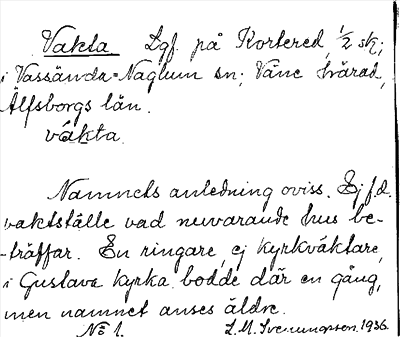 Vakta Lgf. på Kortered, 1/2 sk;
i Vassända-Naglum sn; Väne härad,
Älfsborgs län.
väkta.
Namnets anledning oviss. Ej f.d.
vaktställe vad nuvarande hus be-
-träffar. En ringare, ej kyrkväktare,
i Gustava kyrka bodde där en gång,
men namnet anses äldre.
No 1. L.M. Svenungsson. 1936.